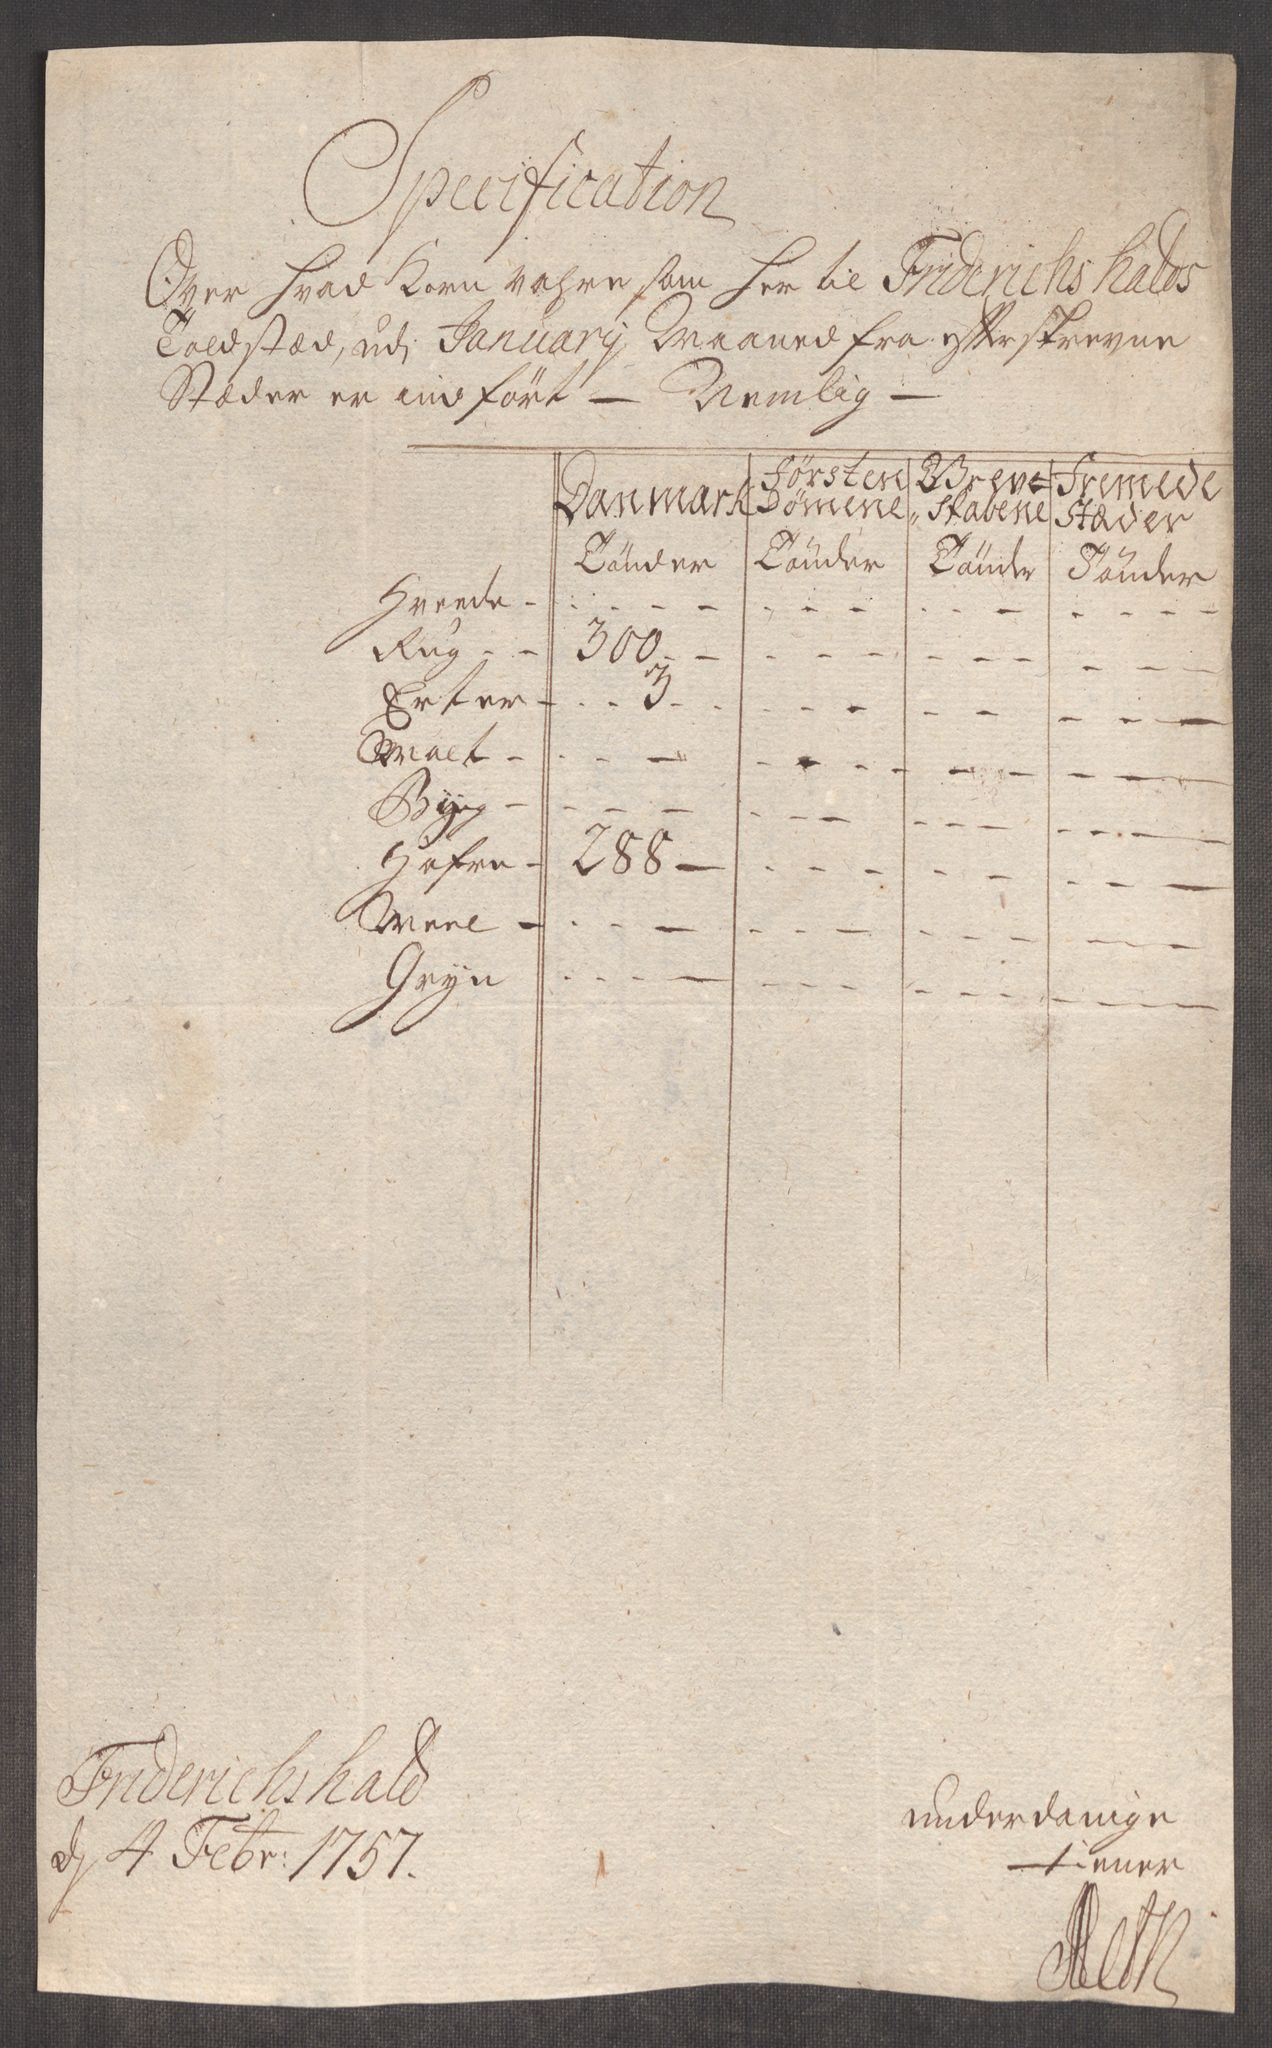 Specification
Over hvad Korn vahre som her til Friderichshalds
Toldstæd, udj January Maaned fra efterskrevne
Stæder er indført — Nemlig —
Danmark Førsten Dømene Greve= skabene Fremede Stæder
Tønder Tønder Tønder Tønder
Hveede - - - - -
Rug - - 300 - -
Erter - - - 3 - -
Malt - - - -
Byg - - - -
Hafre - 288 —
Meel - - - -
Gryn - - - -
Friderichshald
d 4 Febr: 1757.
underdanige
tiener